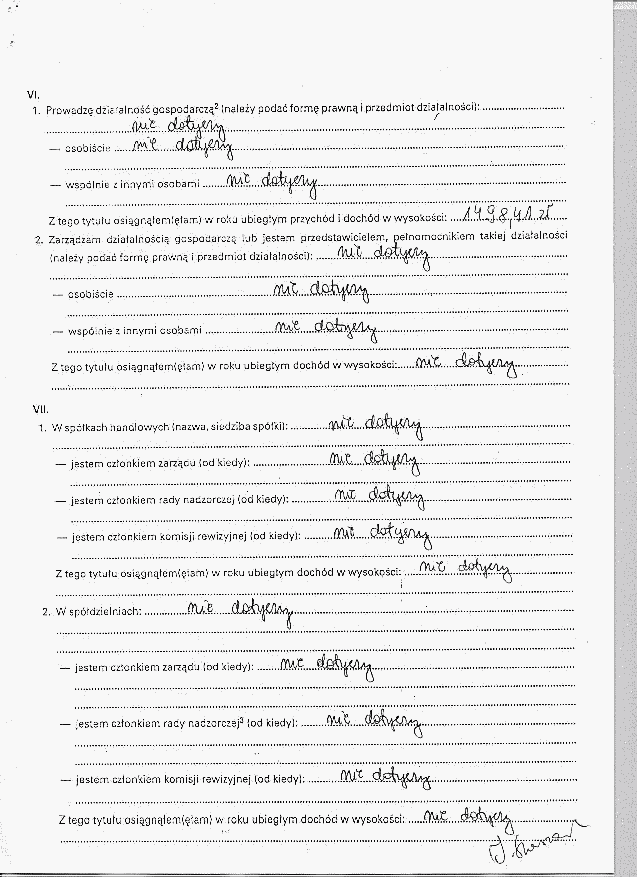 VI.
1. Prowadzę działalność gospodarczą² (należy podać formę prawną i przedmiot działalności):
nie dotyczy
— osobiście nie dotyczy
— wspólnie z innymi osobami nie dotyczy
Z tego tytułu osiągnąłem(ęłam) w roku ubiegłym przychód i dochód w wysokości: 1498,41 zł
2. Zarządzam działalnością gospodarczą lub jestem przedstawicielem, pełnomocnikiem takiej działalności
(należy podać formę prawną i przedmiot działalności): nie dotyczy
— osobiście nie dotyczy
— wspólnie z innymi osobami nie dotyczy
Z tego tytułu osiągnąłem(ęłam) w roku ubiegłym dochód w wysokości: nie dotyczy
VII.
1. W spółkach handlowych (nazwa, siedziba spółki): nie dotyczy
— jestem członkiem zarządu (od kiedy): nie dotyczy
— jestem członkiem rady nadzorczej (od kiedy): nie dotyczy
— jestem członkiem komisji rewizyjnej (od kiedy): nie dotyczy
Z tego tytułu osiągnąłem(ęłam) w roku ubiegłym dochód w wysokości: nie dotyczy
2. W spółdzielniach: nie dotyczy
— jestem członkiem zarządu (od kiedy): nie dotyczy
— jestem członkiem rady nadzorczej³ (od kiedy): nie dotyczy
— jestem członkiem komisji rewizyjnej (od kiedy): nie dotyczy
Z tego tytułu osiągnąłem(ęłam) w roku ubiegłym dochód w wysokości: nie dotyczy